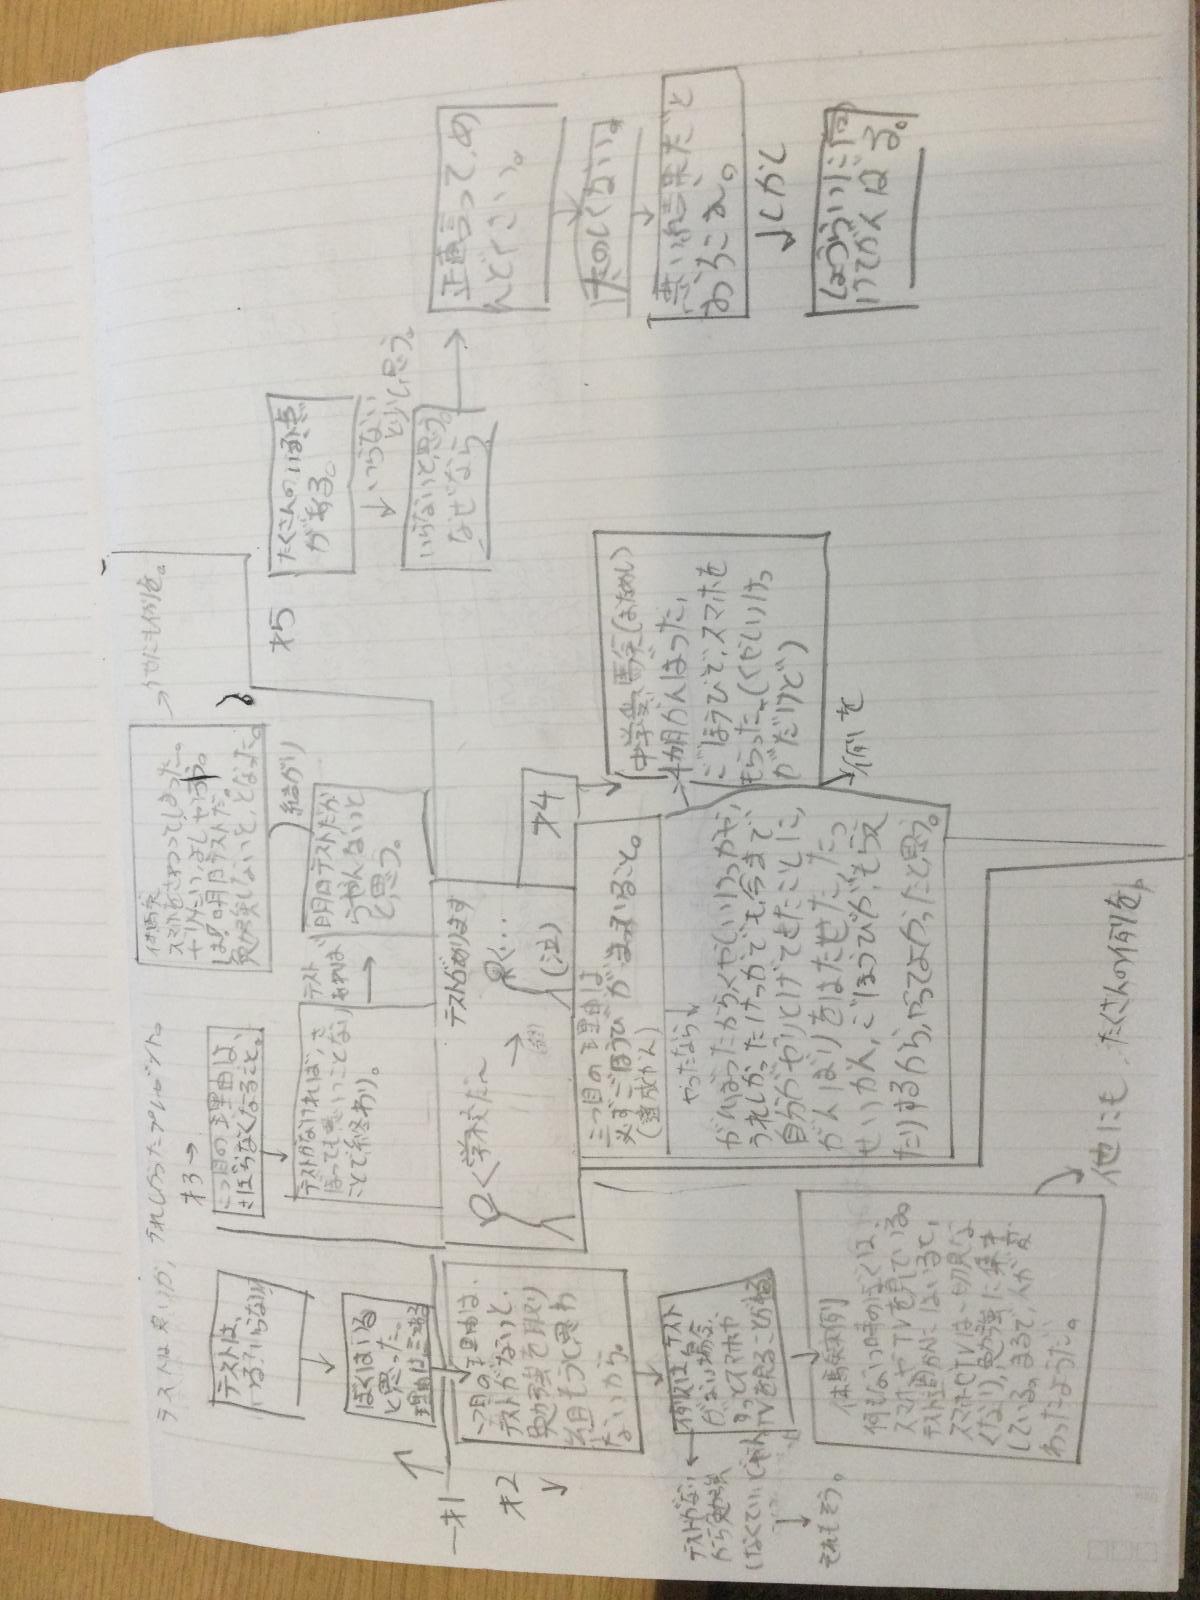 テストは良いか、うれしかったプレゼント。
テストは、
いる?いらない?
ぼくはいる
と思った。
理由は三つある
才1
才2
一つ目の理由は、
テストがないと、
勉強を取り
組もうと思わ
ないから。
テスト
がない場合、
ずっとスマホや
TVを見ることがある
テストがない
から勉強
しなくていいじゃん
それもそう。
体験(実例)
何もない時のぼくは、
スマホやTVを見ている。
テスト週かんにはいると、
スマホやTVは一切見な
くなり、勉強に集中
している。まるで、人が変
わったようだ。
他にも、たくさんの例を、
才3→
二つ目の理由は、
さぼらなくなること。
テストがなければ、さ
ぼっても悪いことなり
ことで終わり。
テスト
あれば
明日テストだか
らやんないと
と思う。
結がり
体験
スマホをさわってしまった。
やりたい、よしやろう。
は!明日テストだ。
勉強しないと、となった。
他にも例を。
早く学校だ〜
テストがあります
早く…
(泣)
才4
三つ目の理由は
必ずごほうびがまっていること。
(達成かん)
やったなら
がんばったからくやしいけっかや、
うれしかったけっかでも、今まで
自分がやりとげてきたことに、
がんばりをはたせた、たっ
せいかん、ごほうびが、もらえ
たりするから、やってよかったと思う。
中学受験(おためし)
4か月がんばった、
ごほうびで、スマホを
もらった。(くやしいけっ
かだけど)
例を
才5
たくさんのいる点
がある。
いらない
と少し思う。
いらないと思う。
なぜなら
正直言って、め
んどくさい。
たのしくない。
悪い出来だと
おちこむ。
しかし
しょうらいに向
けてがんばる。